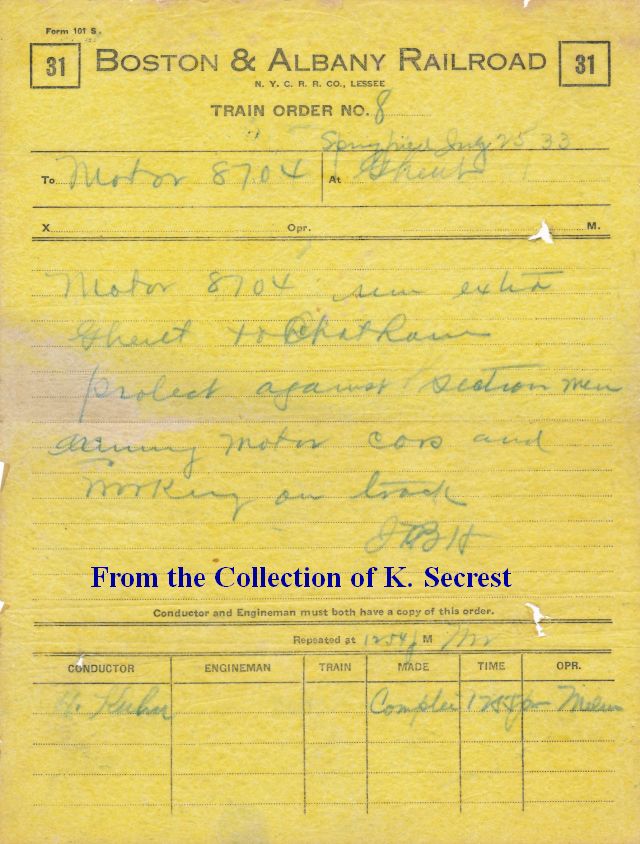 Form 101 S.
31 BOSTON & ALBANY RAILROAD 31
N. Y. C. R. R. CO., LESSEE
TRAIN ORDER NO. 8
25 33
To Motor 8704 At Ghent
X Opr. M.
Motor 8704 run extra
Ghent to Chatham
protect against section men
running motor cars and
working on track
JBH
From the Collection of K. Secrest
Conductor and Engineman must both have a copy of this order.
Repeated at 1254 p M
CONDUCTOR ENGINEMAN TRAIN MADE TIME OPR.
H. 1258 pm